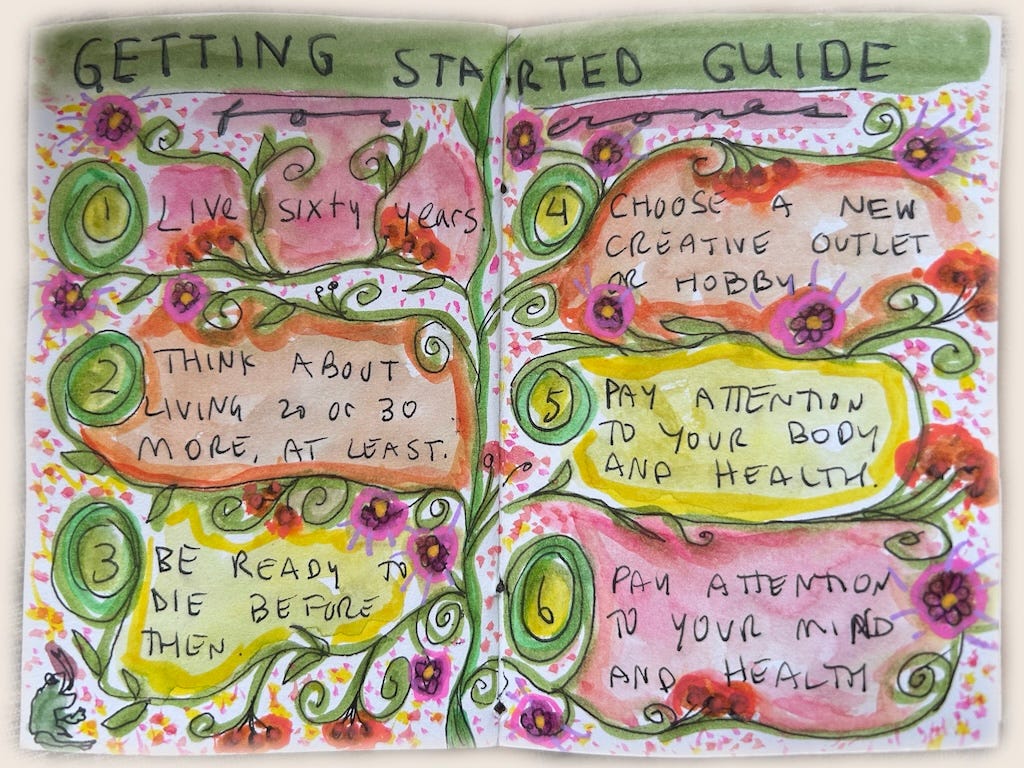 GETTING STARTED GUIDE
for crones
1 Live sixty years.
2 THINK ABOUT
LIVING 20 or 30
MORE, AT LEAST.
3 BE READY TO
DIE BEFORE
THEN.
4 CHOOSE A NEW
CREATIVE OUTLET
OR HOBBY.
5 PAY ATTENTION
TO YOUR BODY
AND HEALTH.
6 PAY ATTENTION
TO YOUR MIND
AND HEALTH